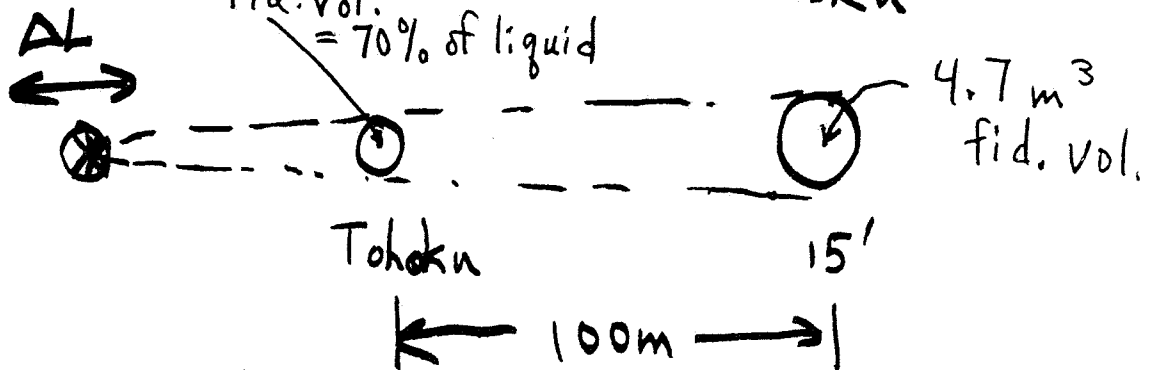 = 70% of liquid
ΔL
4.7 m³
fid. vol.
Tohoku
15'
100m